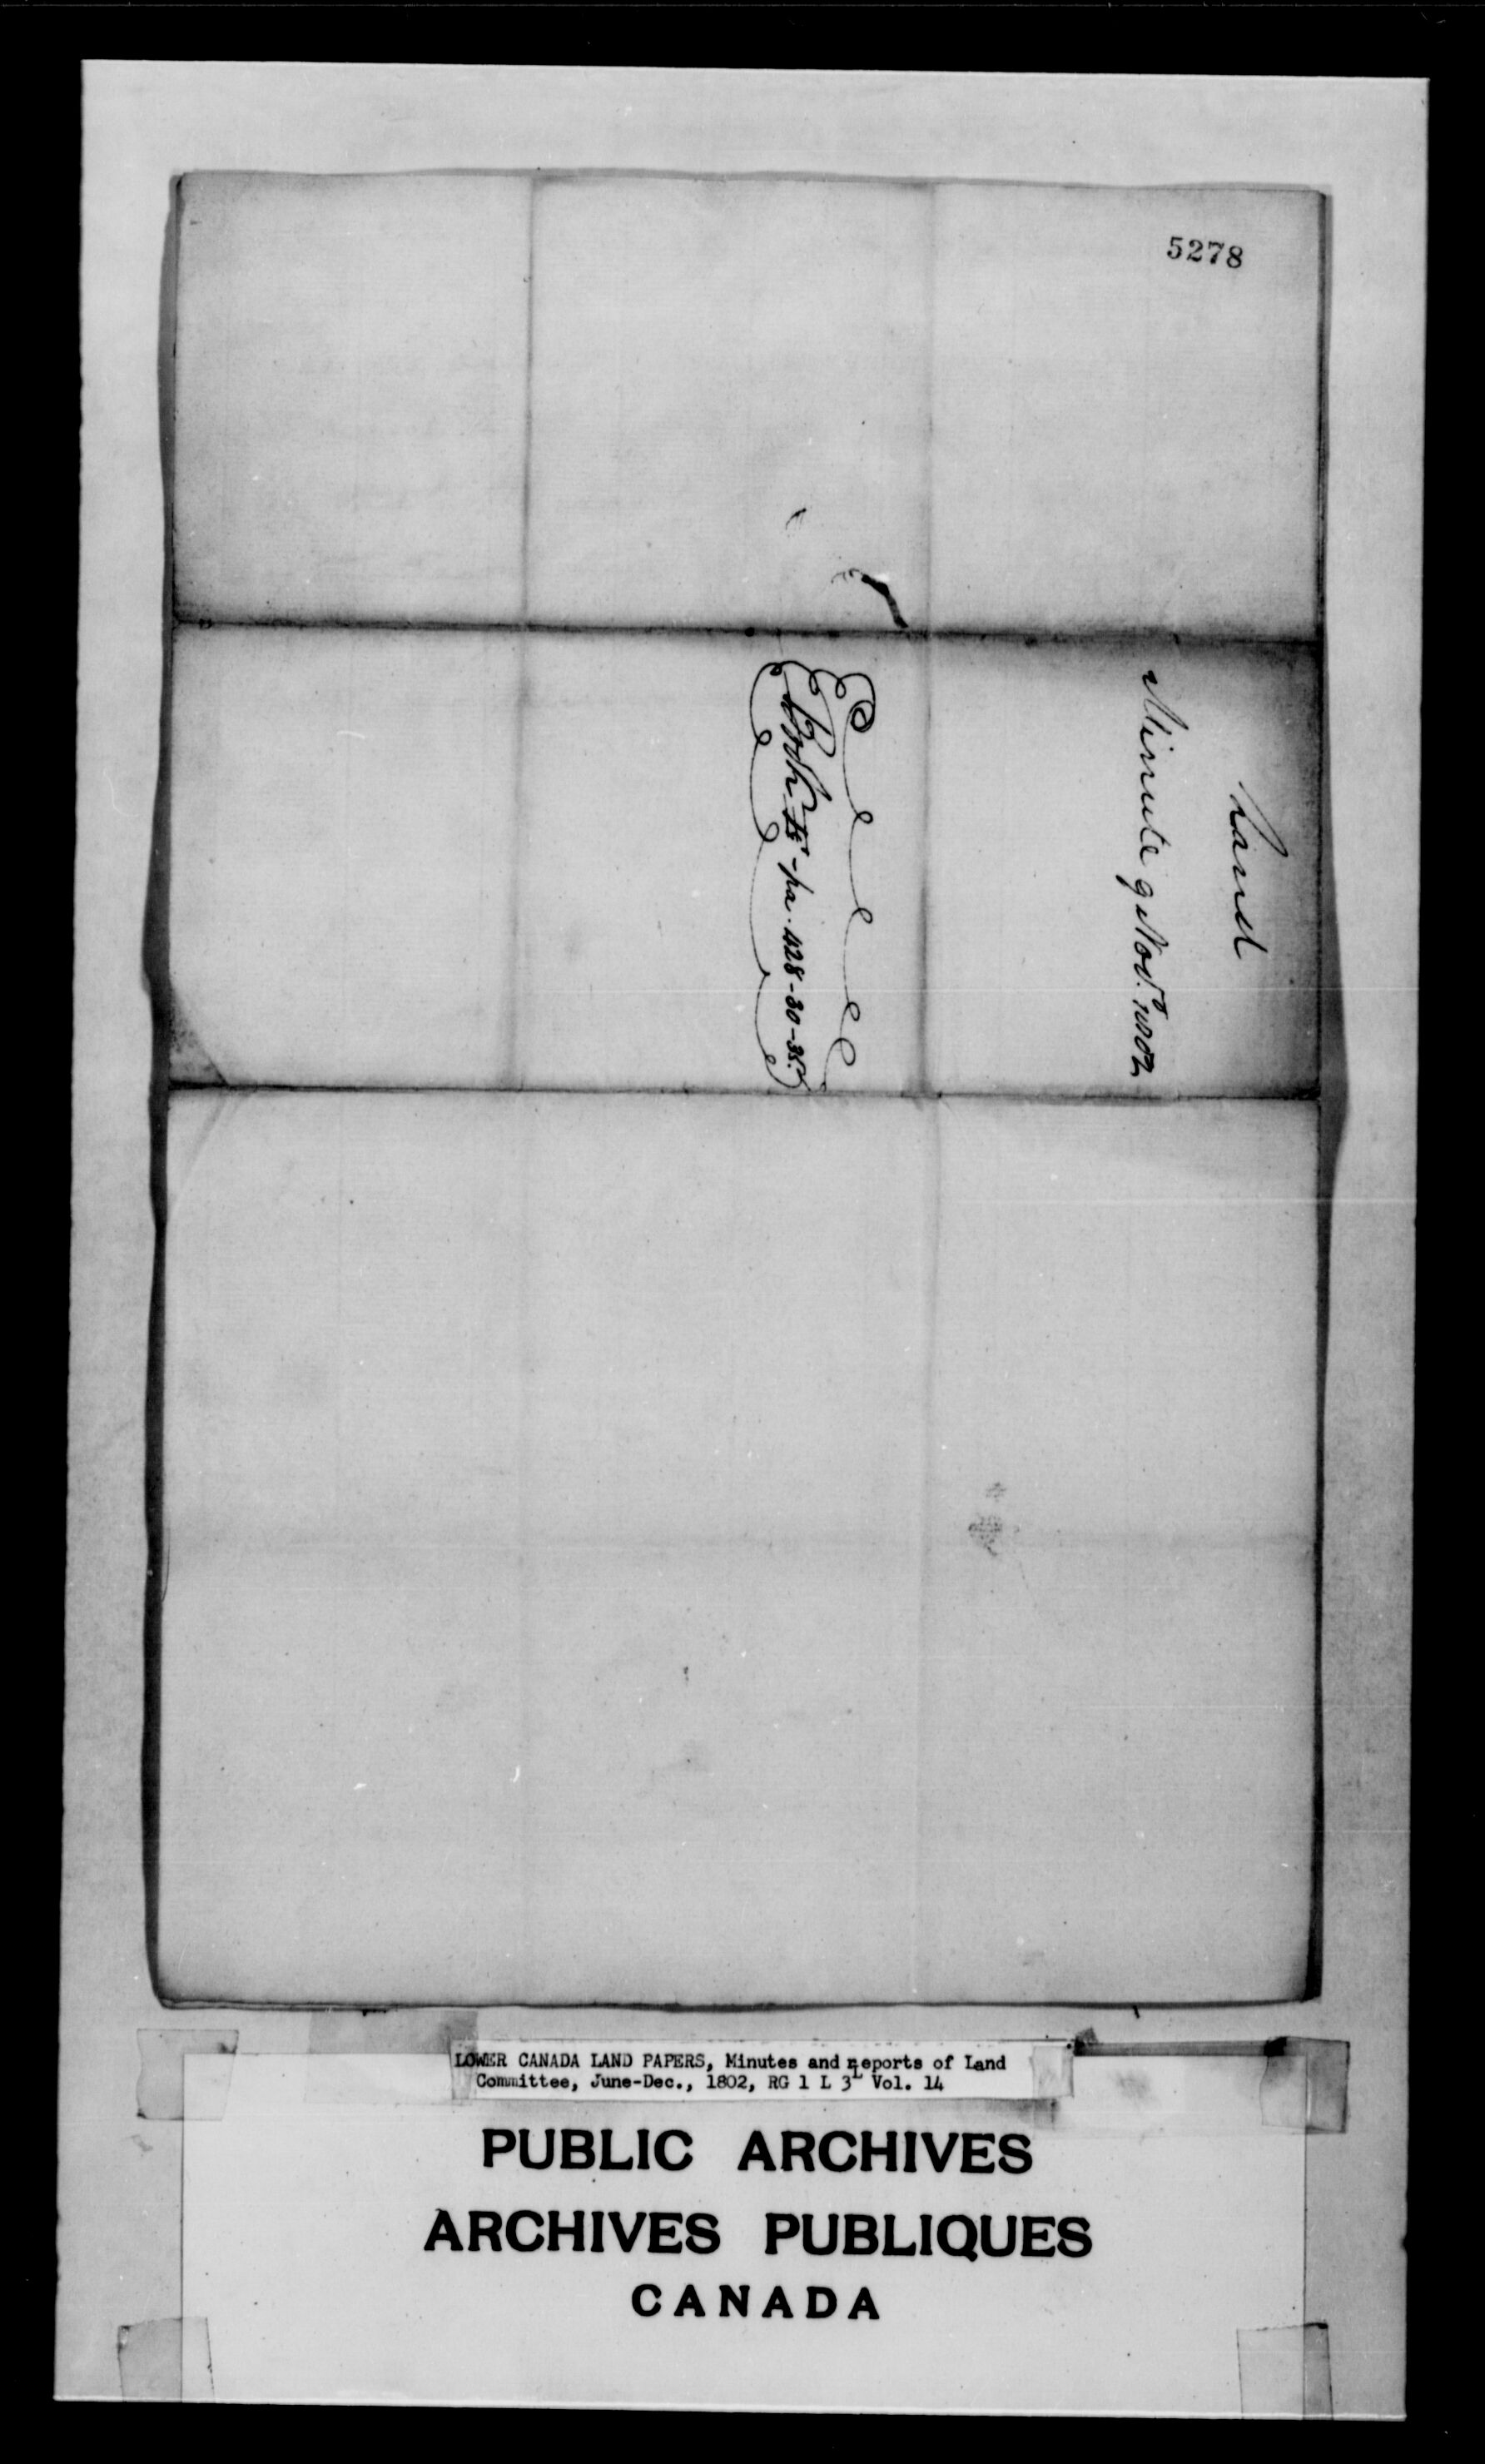 5278
Land
Minute 9 Nov.r 1802
pa. 428-30-35.
LOWER CANADA LAND PAPERS, Minutes and Reports of Land
Committee, June-Dec., 1802, RG 1 L 3L Vol. 14
PUBLIC ARCHIVES
ARCHIVES PUBLIQUES
CANADA